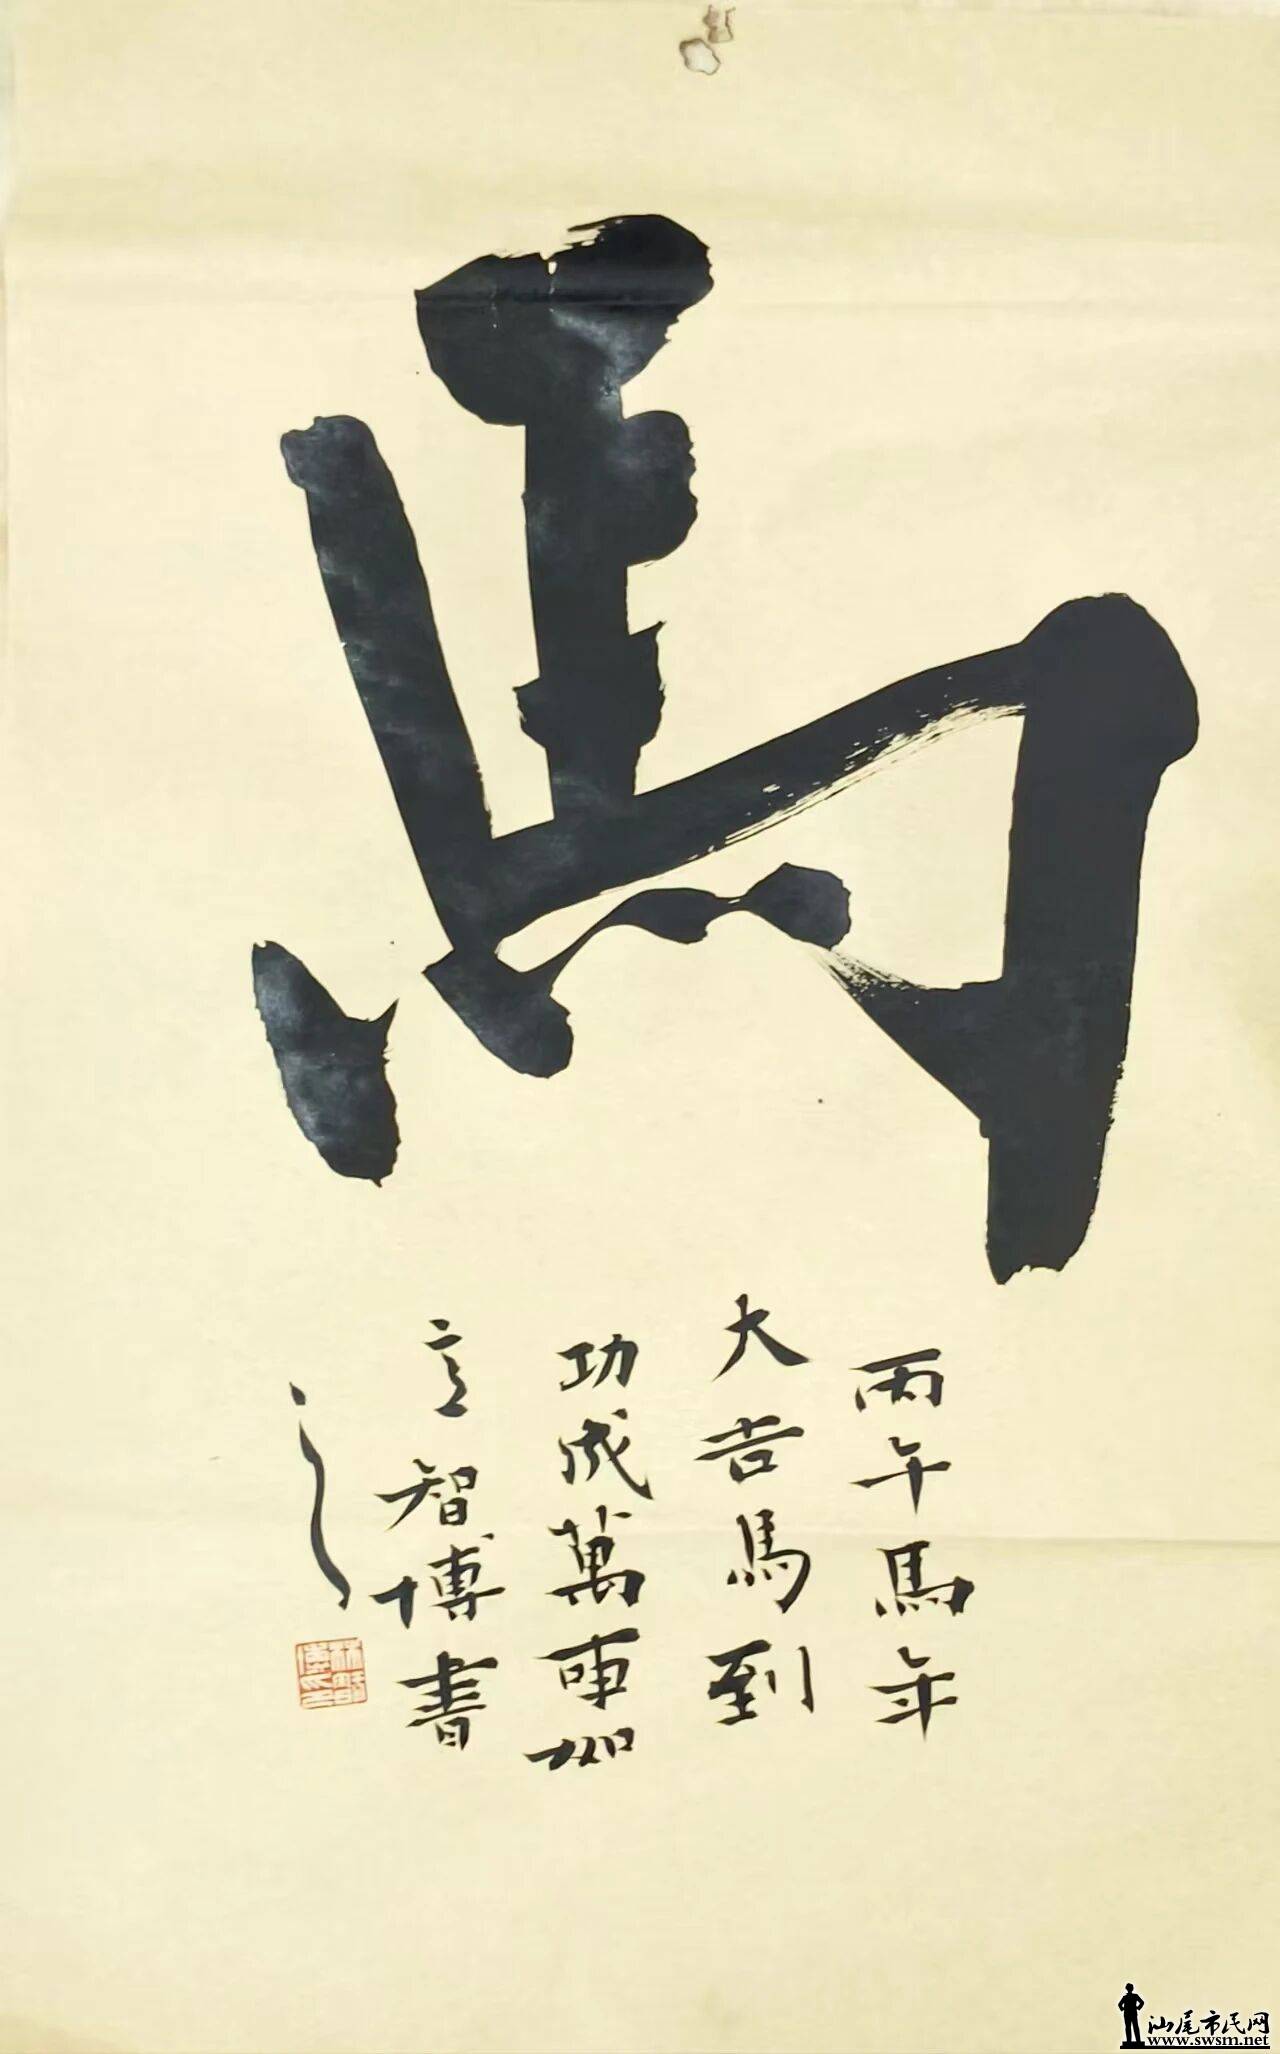 馬
丙午馬年
大吉馬到
功成萬事如
意智博書
之
汕尾市民网
www.swsm.net